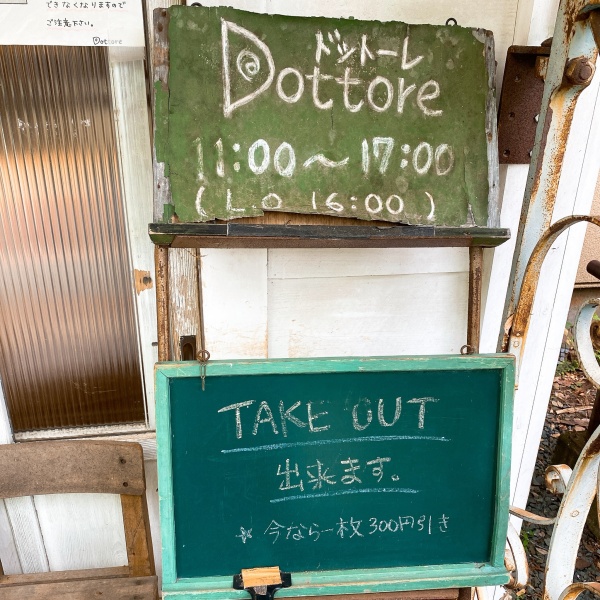 できなくなりますので
ご注意下さい。
Dottore
ドットーレ
Dottore
11:00〜17:00
(L.O 16:00)
TAKE OUT
出来ます。
☆ 今なら一枚300円引き